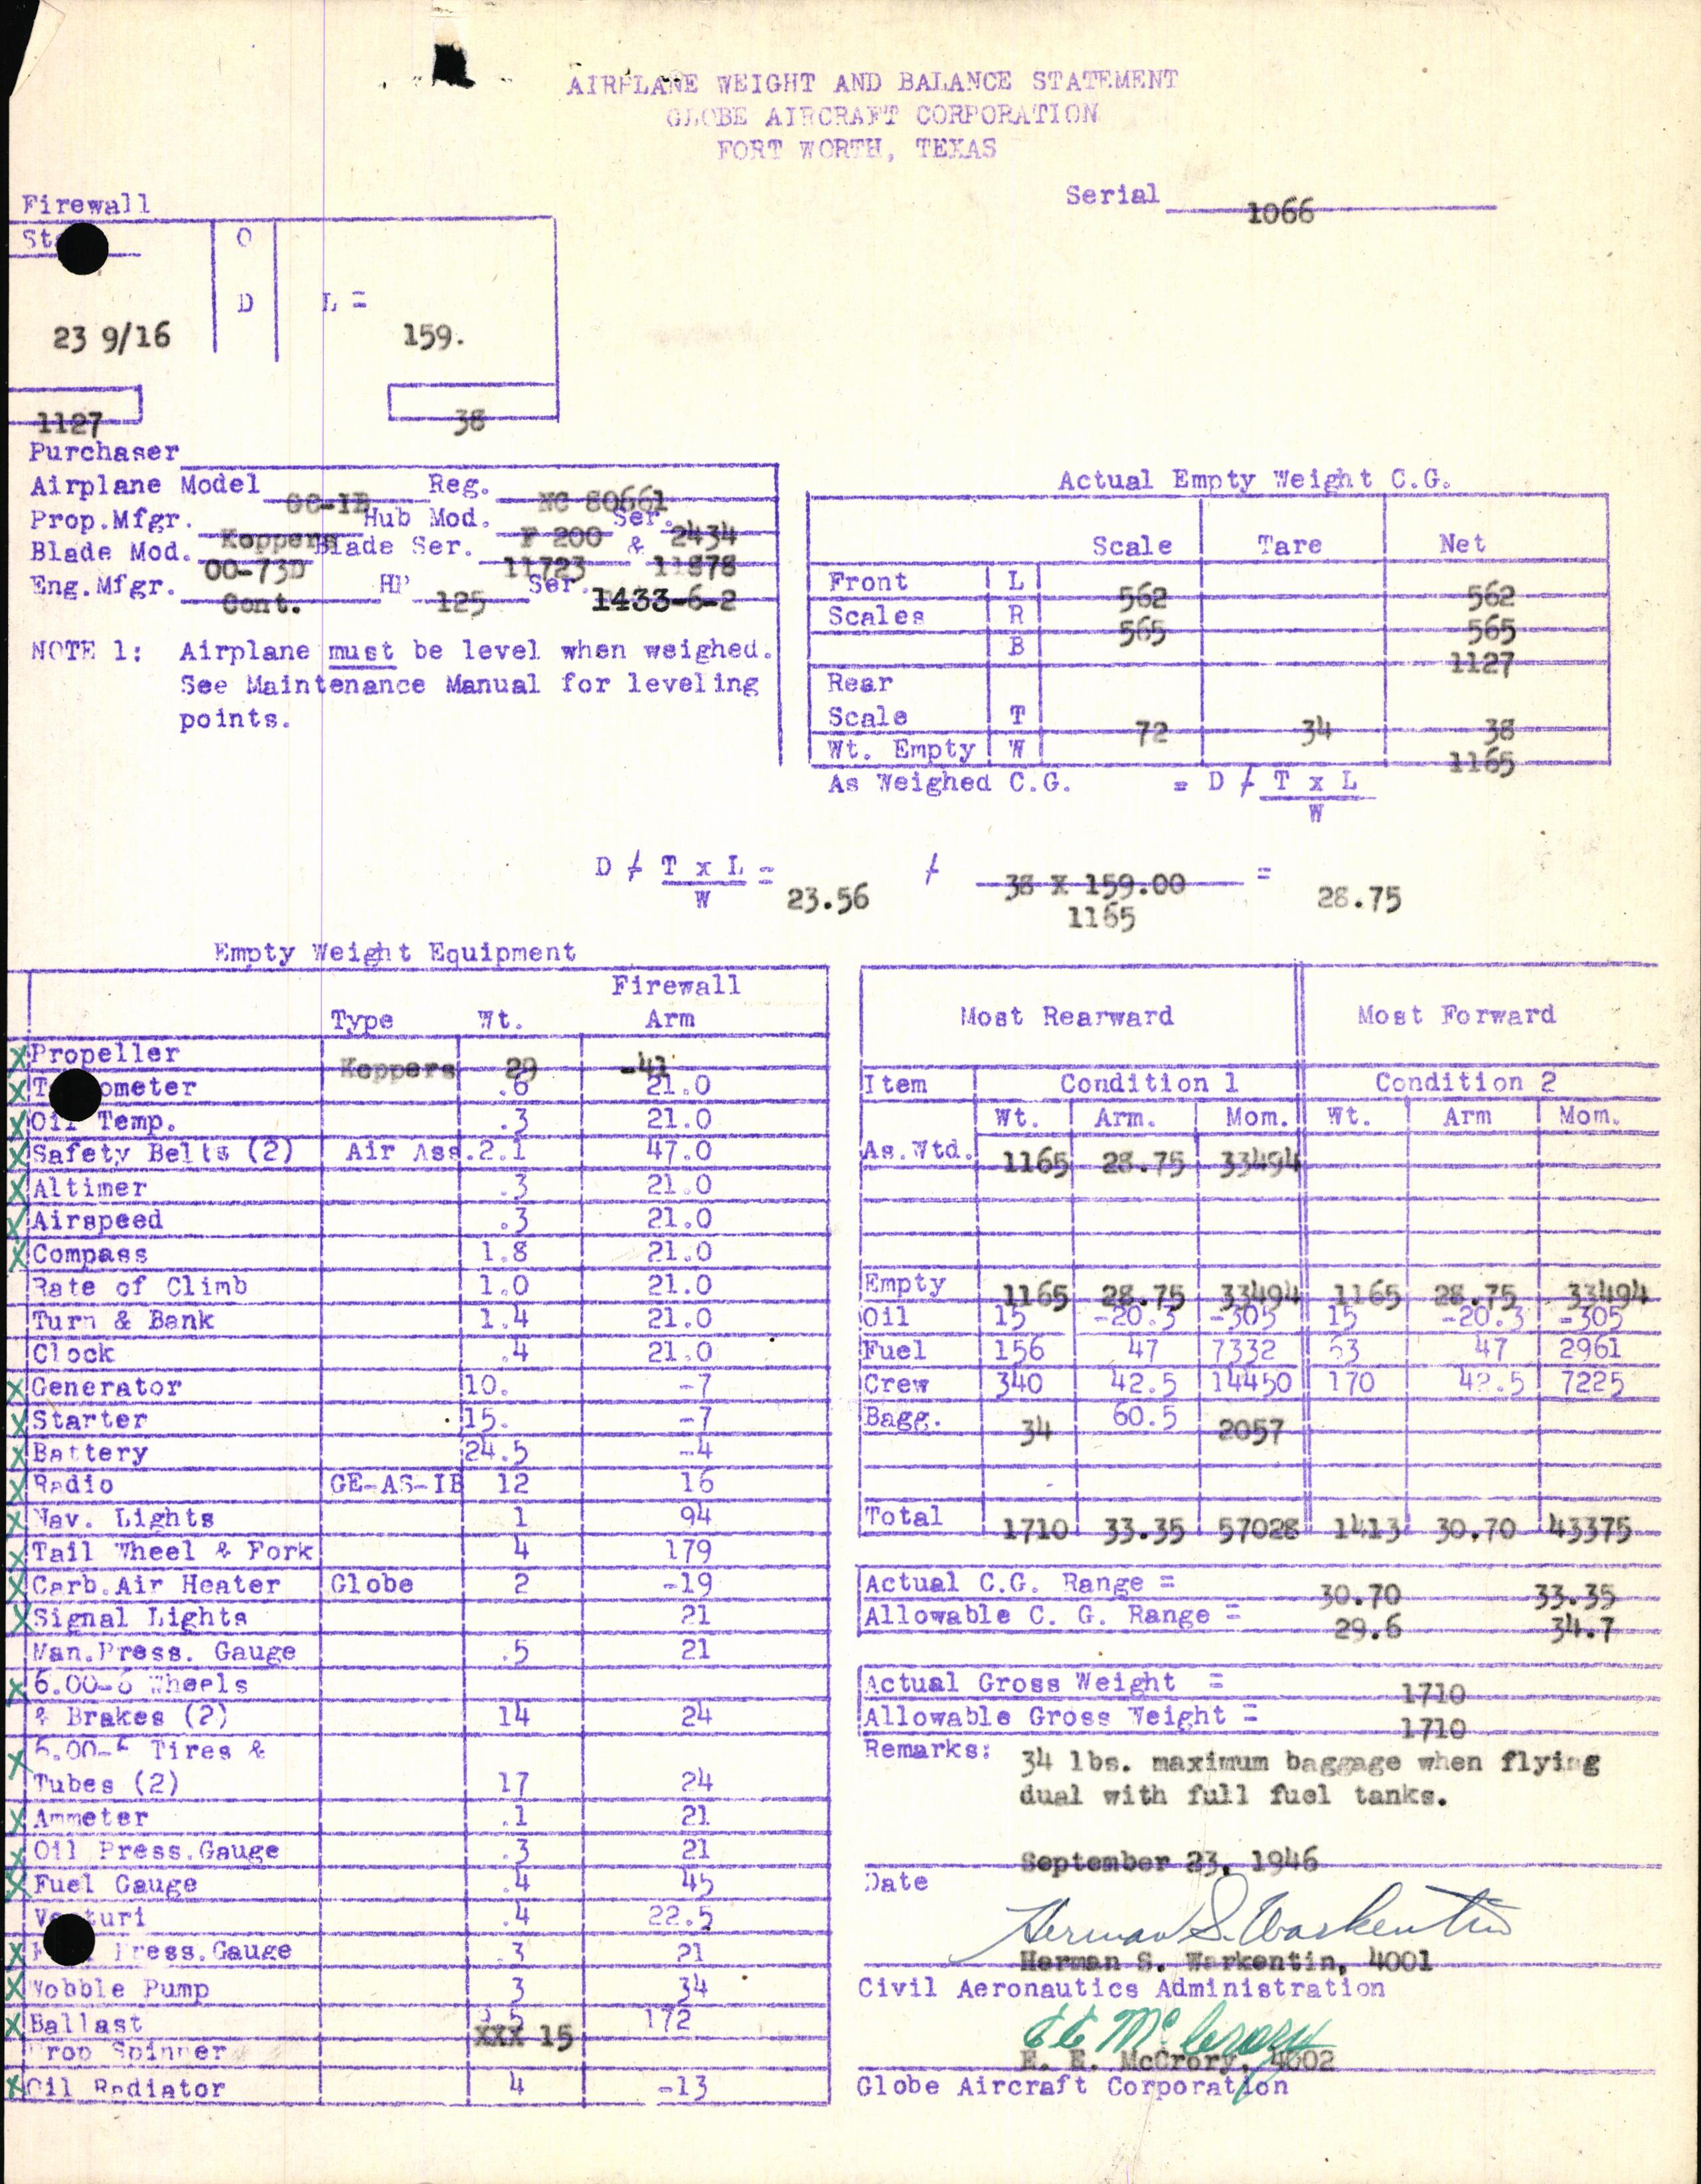 AIRPLANE WEIGHT AND BALANCE STATEMENT
GLOBE AIRCRAFT CORPORATION
FORT WORTH, TEXAS
Serial 1066
Firewall
O
D L =
23 9/16 159.
1127 38
Purchaser
Airplane Model GC-1B Reg. NC 80661
Prop.Mfgr. Koppers Hub Mod. F 200 Ser. 2434
Blade Mod. 00-73D Blade Ser. 11723 & 11878
Eng.Mfgr. Cont. HP 125 Ser. 1433-6-2
NOTE 1: Airplane must be level when weighed.
See Maintenance Manual for leveling
points.
Actual Empty Weight C.G.
Scale Tare Net
Front L 562 562
Scales R 565 565
B 1127
Rear
Scale T 72 34 38
Wt. Empty W 1165
As Weighed C.G. = D / T x L
W
D / T x L = 23.56 / 38 X 159.00 = 28.75
W 1165
Empty Weight Equipment
Firewall
Type Wt. Arm
X Propeller Koppers 29 -41
X .6 21.0
X Oil Temp. .3 21.0
X Safety Belts (2) Air Ass. 2.1 47.0
X Altimer .3 21.0
X Airspeed .3 21.0
X Compass 1.8 21.0
Rate of Climb 1.0 21.0
Turn & Bank 1.4 21.0
Clock .4 21.0
X Generator 10. -7
X Starter 15. -7
X Battery 24.5 -4
X Radio GE-AS-1B 12 16
X Nav. Lights 1 94
X Tail Wheel & Fork 4 179
X Carb.Air Heater Globe 2 -19
X Signal Lights 21
Man.Press. Gauge .5 21
X 6.00-6 Wheels
& Brakes (2) 14 24
X 6.00-6 Tires &
Tubes (2) 17 24
X Ammeter .1 21
X Oil Press.Gauge .3 21
X Fuel Gauge .4 45
Venturi .4 22.5
X Press.Gauge .3 21
X Wobble Pump 3 34
X Ballast XXX 15 172
Prop Spinner
X Oil Radiator 4 -13
Most Rearward Most Forward
Item Condition 1 Condition 2
Wt. Arm. Mom. Wt. Arm Mom.
As.Wtd. 1165 28.75 33494
Empty 1165 28.75 33494 1165 28.75 33494
Oil 15 -20.3 -305 15 -20.3 -305
Fuel 156 47 7332 63 47 2961
Crew 340 42.5 14450 170 42.5 7225
Bagg. 34 60.5 2057
Total 1710 33.35 57028 1413 30.70 43375
Actual C.G. Range = 30.70 33.35
Allowable C. G. Range = 29.6 34.7
Actual Gross Weight = 1710
Allowable Gross Weight = 1710
Remarks: 34 lbs. maximum baggage when flying
dual with full fuel tanks.
September 23, 1946
Date
Herman S. Warkentin
Herman S. Warkentin, 4001
Civil Aeronautics Administration
EE McCrory
E. E. McCrory, 4002
Globe Aircraft Corporation